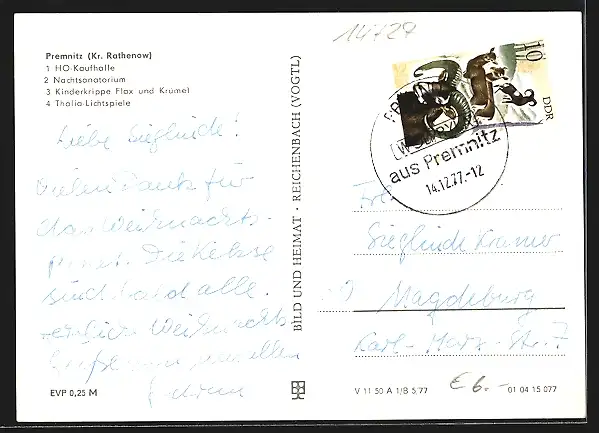 14727
Premnitz (Kr. Rathenow)
1 HO-Kaufhalle
2 Nachtsanatorium
3 Kinderkrippe Flax und Krümel
4 Thalia-Lichtspiele
Liebe Sieglinde!
Vielen Dank für
das Weihnachts-
Die Kekse
sind bald alle.
Weihnachts-
von uns allen
BILD UND HEIMAT · REICHENBACH (VOGTL)
10
DDR
aus Premnitz
14.12.77.-12
Frl.
Sieglinde Kramer
Magdeburg
Karl-Marx-Str. 7
EVP 0,25 M
V 11 50 A 1/B 5/77
€ 6.-
01 04 15 077